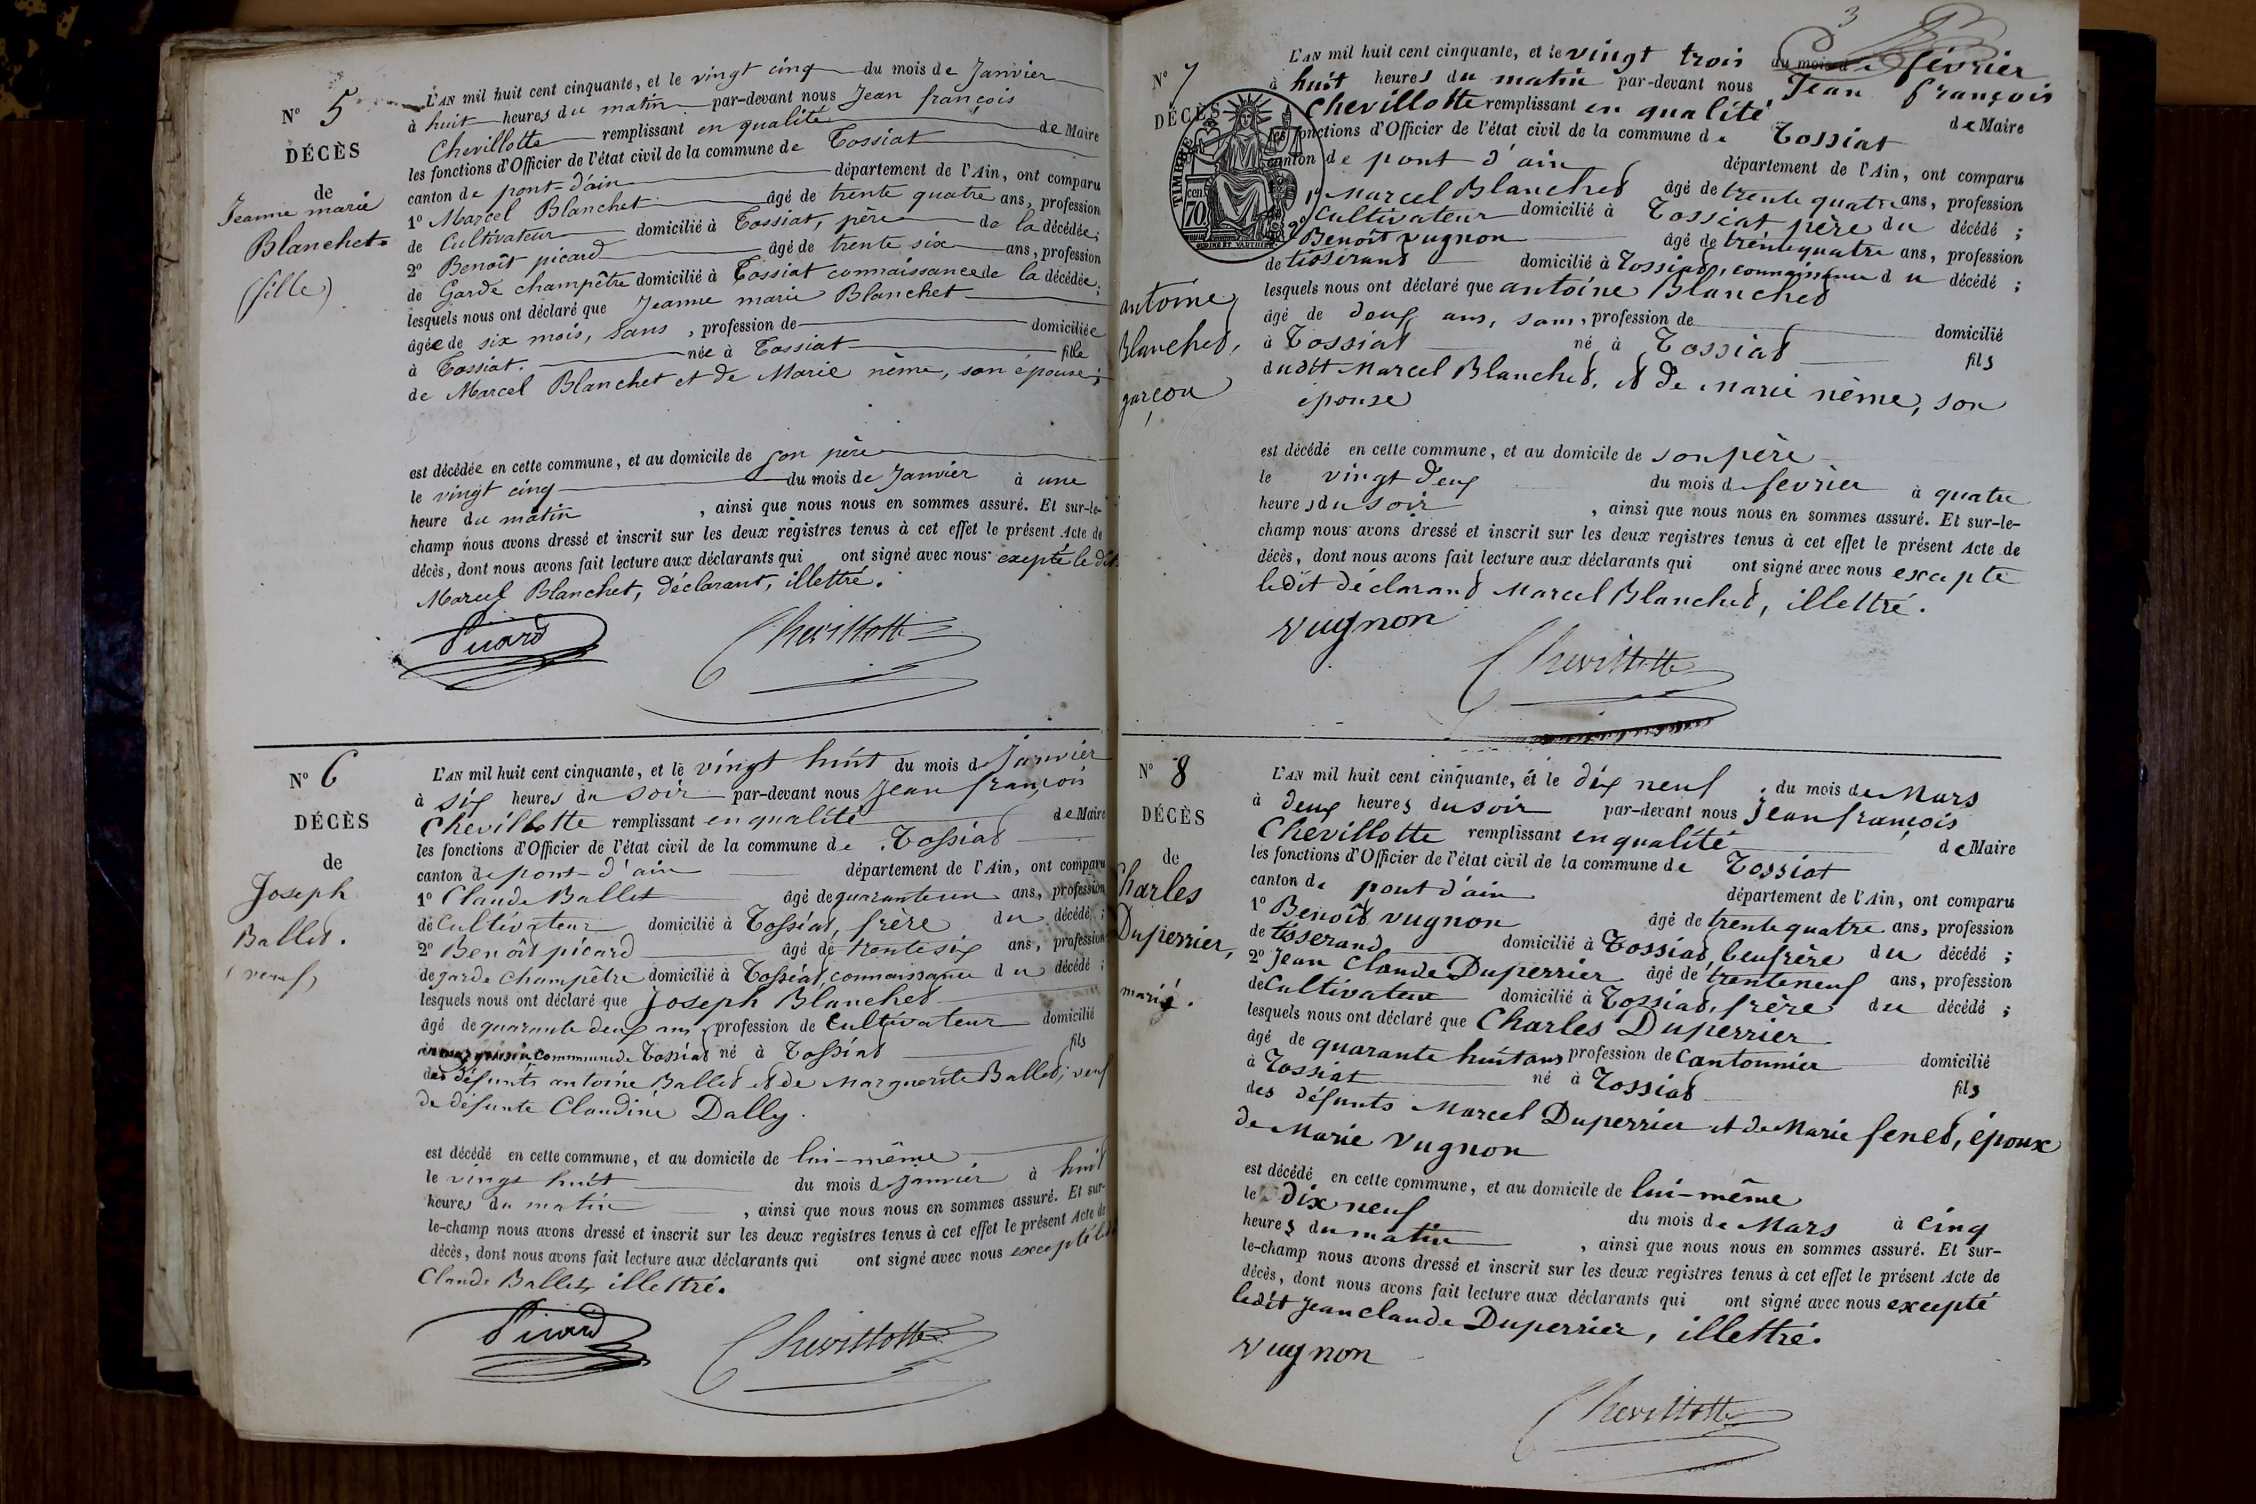 N° 5
DÉCÈS
de
Jeanne marie
Blanchet.
(fille)
L'AN mil huit cent cinquante, et le vingt cinq du mois de Janvier
à huit heures du matin par-devant nous Jean françois
Chevillotte remplissant en qualité de Maire
les fonctions d'Officier de l'état civil de la commune de Tossiat
canton de pont-d'ain département de l'Ain, ont comparu
1° Marcel Blanchet âgé de trente quatre ans, profession
de Cultivateur domicilié à Tossiat, père de la décédée;
2° Benoît picard âgé de trente six ans, profession
de Garde champêtre domicilié à Tossiat connaissance de la décédée;
lesquels nous ont déclaré que Jeanne marie Blanchet
âgée de six mois, sans, profession de domiciliée
à Tossiat. née à Tossiat fille
de Marcel Blanchet et de Marie nême, son épouse;
est décédée en cette commune, et au domicile de son père
le vingt cinq du mois de Janvier à une
heure du matin, ainsi que nous nous en sommes assuré. Et sur-le-
champ nous avons dressé et inscrit sur les deux registres tenus à cet effet le présent Acte de
décès, dont nous avons fait lecture aux déclarants qui ont signé avec nous excepté le dit
Marcel Blanchet, déclarant, illettré.
Picard Chevillotte
N° 6
DÉCÈS
de
Joseph
Ballet.
(veuf)
L'AN mil huit cent cinquante, et le vingt huit du mois d Janvier
à six heures du soir par-devant nous Jean françois
Chevillotte remplissant en qualité de Maire
les fonctions d'Officier de l'état civil de la commune de Tossiat
canton de pont-d'ain département de l'Ain, ont comparu
1° Claude Ballet âgé de quarante un ans, profession
de Cultivateur domicilié à Tossiat, frère du décédé;
2° Benoît picard âgé de trente six ans, profession
de garde champêtre domicilié à Tossiat, connaissance du décédé;
lesquels nous ont déclaré que Joseph Blanchet
âgé de quarante deux ans, profession de Cultivateur domicilié
commune de Tossiat né à Tossiat fils
des défunts antoine Ballet et de Marguerite Ballet; veuf
de défunte Claudine Dally.
est décédé en cette commune, et au domicile de lui-même
le vingt huit du mois d Janvier à huit
heures du matin, ainsi que nous nous en sommes assuré. Et sur-
le-champ nous avons dressé et inscrit sur les deux registres tenus à cet effet le présent Acte de
décès, dont nous avons fait lecture aux déclarants qui ont signé avec nous excepté
Claude Ballet, illettré.
Picard Chevillotte
3
N° 7
DÉCÈS
TIMBRE
70
antoine
Blanchet,
garçon
L'AN mil huit cent cinquante, et le vingt trois du mois de février
à huit heures du matin par-devant nous Jean françois
Chevillotte remplissant en qualité de Maire
les fonctions d'Officier de l'état civil de la commune de Tossiat
canton de pont d'ain département de l'Ain, ont comparu
1° Marcel Blanchet âgé de trente quatre ans, profession
Cultivateur domicilié à Tossiat père du décédé;
2° Benoît vugnon âgé de trente quatre ans, profession
de tisserand domicilié à Tossiat, connaissance du décédé;
lesquels nous ont déclaré que antoine Blanchet
âgé de deux ans, sans, profession de domicilié
à Tossiat né à Tossiat fils
dudit Marcel Blanchet, et de Marie nême, son
épouse
est décédé en cette commune, et au domicile de son père
le vingt deux du mois d février à quatre
heures du soir, ainsi que nous nous en sommes assuré. Et sur-le-
champ nous avons dressé et inscrit sur les deux registres tenus à cet effet le présent Acte de
décès, dont nous avons fait lecture aux déclarants qui ont signé avec nous excepté
ledit déclarant Marcel Blanchet, illettré.
vugnon
Chevillotte
N° 8
DÉCÈS
de
Charles
Duperrier,
marié.
L'AN mil huit cent cinquante, et le dix neuf du mois de Mars
à deux heures du soir par-devant nous Jean françois
Chevillotte remplissant en qualité de Maire
les fonctions d'Officier de l'état civil de la commune de Tossiat
canton de pont d'ain département de l'Ain, ont comparu
1° Benoît vugnon âgé de trente quatre ans, profession
de tisserand domicilié à Tossiat, beufrère du décédé;
2° Jean Claude Duperrier âgé de trente neuf ans, profession
de Cultivateur domicilié à Tossiat, frère du décédé;
lesquels nous ont déclaré que Charles Duperrier
âgé de quarante huit ans profession de Cantonnier domicilié
à Tossiat né à Tossiat fils
des défunts Marcel Duperrier et de Marie fenet, époux
de Marie Vugnon
est décédé en cette commune, et au domicile de lui-même
le dix neuf du mois de Mars à cinq
heures du matin, ainsi que nous nous en sommes assuré. Et sur-
le-champ nous avons dressé et inscrit sur les deux registres tenus à cet effet le présent Acte de
décès, dont nous avons fait lecture aux déclarants qui ont signé avec nous excepté
ledit Jean claude Duperrier, illettré.
vugnon
Chevillotte